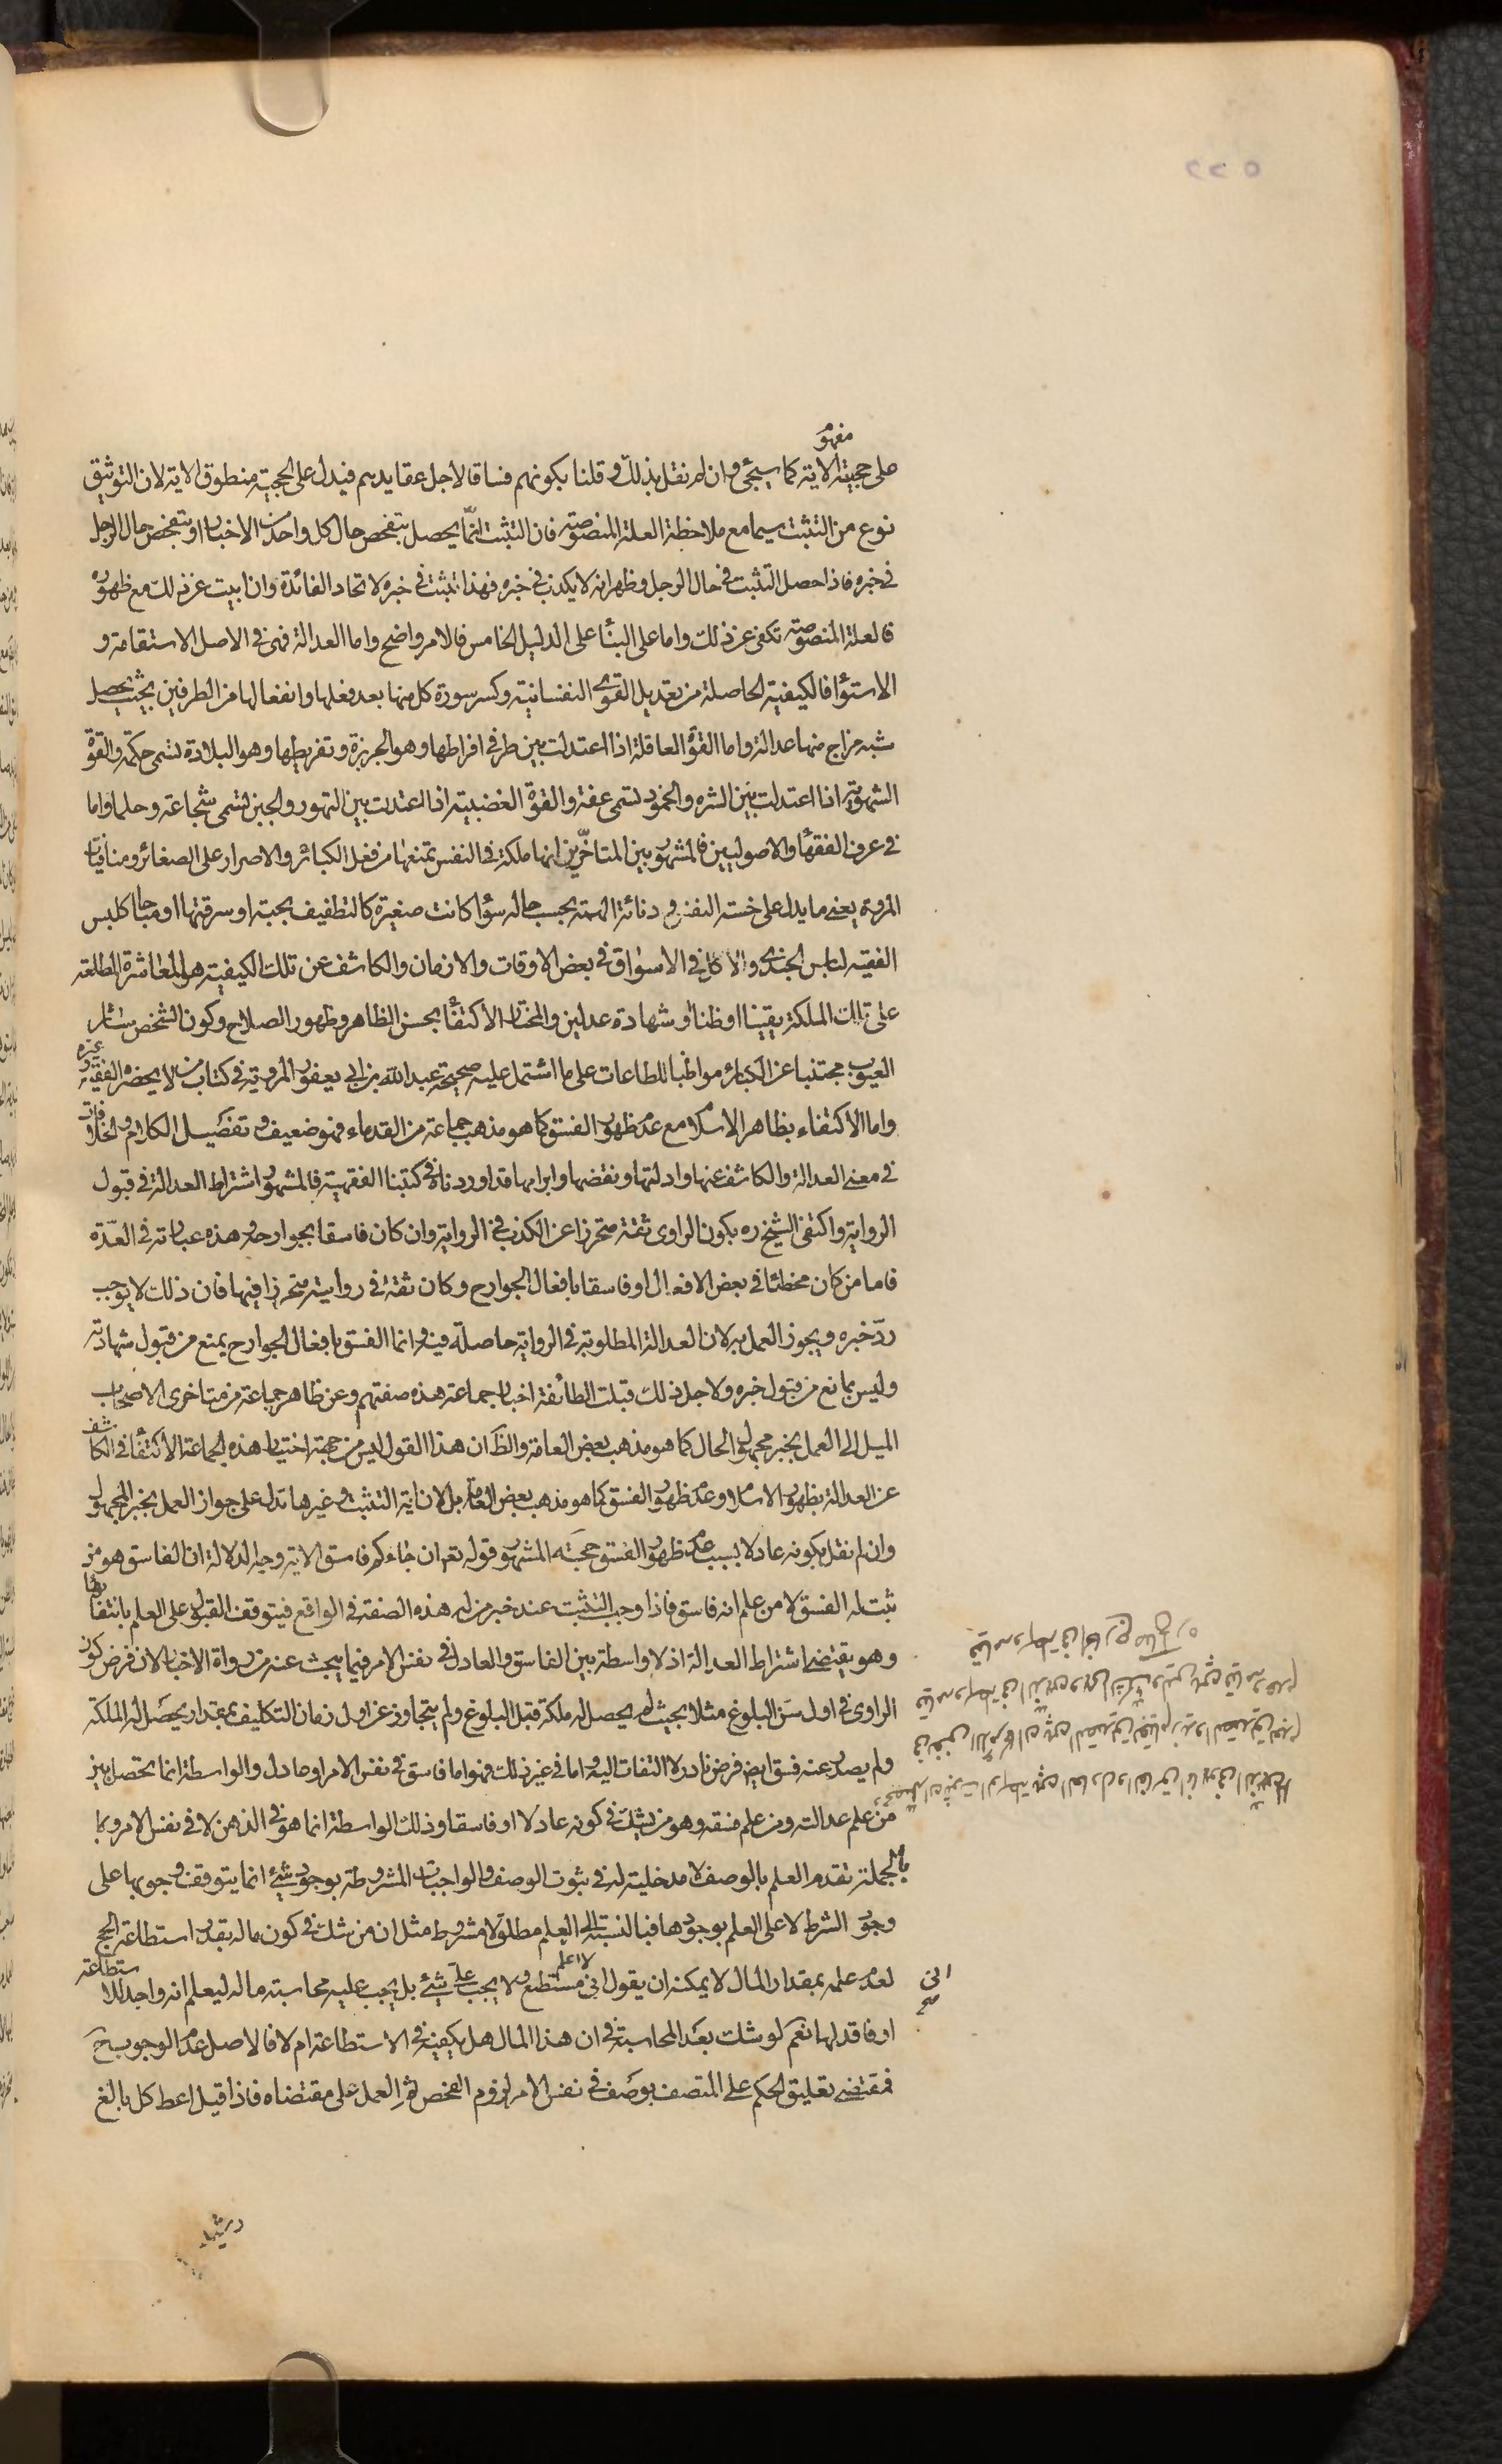 مفهوم
على حجيته الاية كما سيجئ وان لم نقل بذلك وقلنا بكونهم فساقا لاجل عقايدهم فيدل على الحجية منطوق الاية لان التوثيق
نوع من التثبت سيما مع ملاحظة العلة المنصوصة فان التثبت انما يحصل بتفحص حال كل واحد من الاخبار او بتفحص حال الرجل
في خبره فاذا حصل التثبت في حال الرجل وظهر انه لا يكذب في خبره فهذا تثبت في خبره لاتحاد الفائدة وان ابيت عن ذلك مع ظهوره
فالعلة المنصوصة تكفى عن ذلك واما على البنأ على الدليل الخامس فالامر واضح واما العدالة فهى في الاصل الاستقامة و
الاستوأ فالكيفية الحاصلة من تعديل القوى النفسانية وكسر سورة كل منها بعد فعلها وانفعالها من الطرفين بحيث يحصل
شبه مزاج منها عدالة واما القوة العاقلة اذا اعتدلت بين طرفي افراطها وهو الجربزة وتفريطها وهو البلادة تسمى حكمة والقوة
الشهوية اذا اعتدلت بين الشره والخمود تسمى عفة والقوة الغضبية اذا اعتدلت بين التهور والجبن تسمى شجاعة وحلما واما
في عرف الفقهأ والاصوليين فالمشهور بين المتاخرين انها ملكة في النفس تمنعها من فعل الكبائر والاصرار على الصغائر ومنافيات
المروة يعنى ما يدل على خسة النفس ودنائة الهمة بحسب حاله سوأ كانت صغيرة كالتطفيف بحبة او سرقتها او مباحا كلبس
الفقيه لباس الجندى والاكل في الاسواق في بعض الاوقات والازمان والكاشف عن تلك الكيفية هو المعاشرة المطلعة
على تلك الملكة يقينا او ظنا او شهادة عدلين والمختار الاكتفأ بحسن الظاهر وظهور الصلاح وكون الشخص ساتر
العيوب مجتنبا عن الكبائر مواظبا للطاعات على ما اشتمل عليه صحيحة عبد الله بن ابي يعفور المروية في كتاب من لا يحضره الفقيه وغيره
واما الاكتفاء بظاهر الاسلام مع عدم ظهور الفسق كما هو مذهب جماعة من القدماء فهو ضعيف وتفصيل الكلام والخلافات
في معنى العدالة والكاشف عنها وادلتها ونقضها وابرامها قد اوردناه في كتبنا الفقهية فالمشهور اشتراط العدالة في قبول
الرواية واكتفى الشيخ ره بكون الراوى ثقة متحرزا عن الكذب في الرواية وان كان فاسقا بجوارحه وهذه عبارته في العدّة
فاما من كان مخطئا في بعض الافعال او فاسقا بافعال الجوارح وكان ثقة في روايته متحرزا فيها فان ذلك لا يوجب
ردّ خبره ويجوز العمل به لان العدالة المطلوبة في الرواية حاصلة فيه وانما الفسق بافعال الجوارح يمنع من قبول شهادته
وليس بمانع من قبول خبره ولاجل ذلك قبلت الطائفة اخبار جماعة هذه صفتهم وعن ظاهر جماعة من متاخرى الاصحاب
الميل الى العمل بخبر مجهول الحال كما هو مذهب بعض العامة والظ ان هذا القول ليس من جهة اختيار هذه الجماعة الاكتفأ في الكاشف
عن العدالة بظهور الاسلام وعدم ظهور الفسق كما هو مذهب بعض العامة بل لان اية التثبت وغيرها تدل على جواز العمل بخبر المجهول
وان لم نقل بكونه عادلا بسبب عدم ظهور الفسق حجة المشهور قوله تعم ان جاءكم فاسق الاية وجه الدلالة ان الفاسق هو من
ثبت له الفسق لا من علم انه فاسق فاذا وجب التثبت عند خبر من له هذه الصفة في الواقع فيتوقف القبول على العلم بانتفائها
وهو يقتضى اشتراط العدالة اذ لا واسطة بين الفاسق والعادل في نفس الامر فيما يبحث عنه من رواة الاخبار لان فرض كون
الراوى في اول سن البلوغ مثلا بحيث لم يحصل له ملكة قبل البلوغ ولم يتجاوز عن اول زمان التكليف بمقدار يحصل له الملكة
ولم يصدر عنه فسق ايض فرض نادر لا التفات اليه واما في غير ذلك فهو اما فاسق في نفس الامر او عادل والواسطة انما يحصل بين
من علم عدالته ومن علم فسقه وهو من يشك في كونه عادلا او فاسقا وذلك الواسطة انما هو في الذهن لا في نفس الامر وبا
بالجملة تقدم العلم بالوصف لا مدخلية له في ثبوت الوصف والواجبات المشروطة بوجود شئ انما يتوقف وجوبها على
وجود الشرط لا على العلم بوجودها فبالنسبة الى العلم مطلق لا مشروط مثل ان من شك في كون ماله بقدر استطاعة الحج
لعدم علمه بمقدار المال لا يمكنه ان يقول انى لا اعلم مستطيع ولا يجب على شئ بل يجب عليه محاسبة ماله ليعلم انه واجد للاستطاعة
او فاقد لها نعم لو شك بعد المحاسبة في ان هذا المال هل يكفيه في الاستطاعة ام لا فالاصل عدم الوجوب ح
فمقتضى تعليق الحكم على المتصف بوصف في نفس الامر لزوم الفحص ثم العمل على مقتضاه فاذا قيل اعط كل بالغ
انى
صح
رشيد